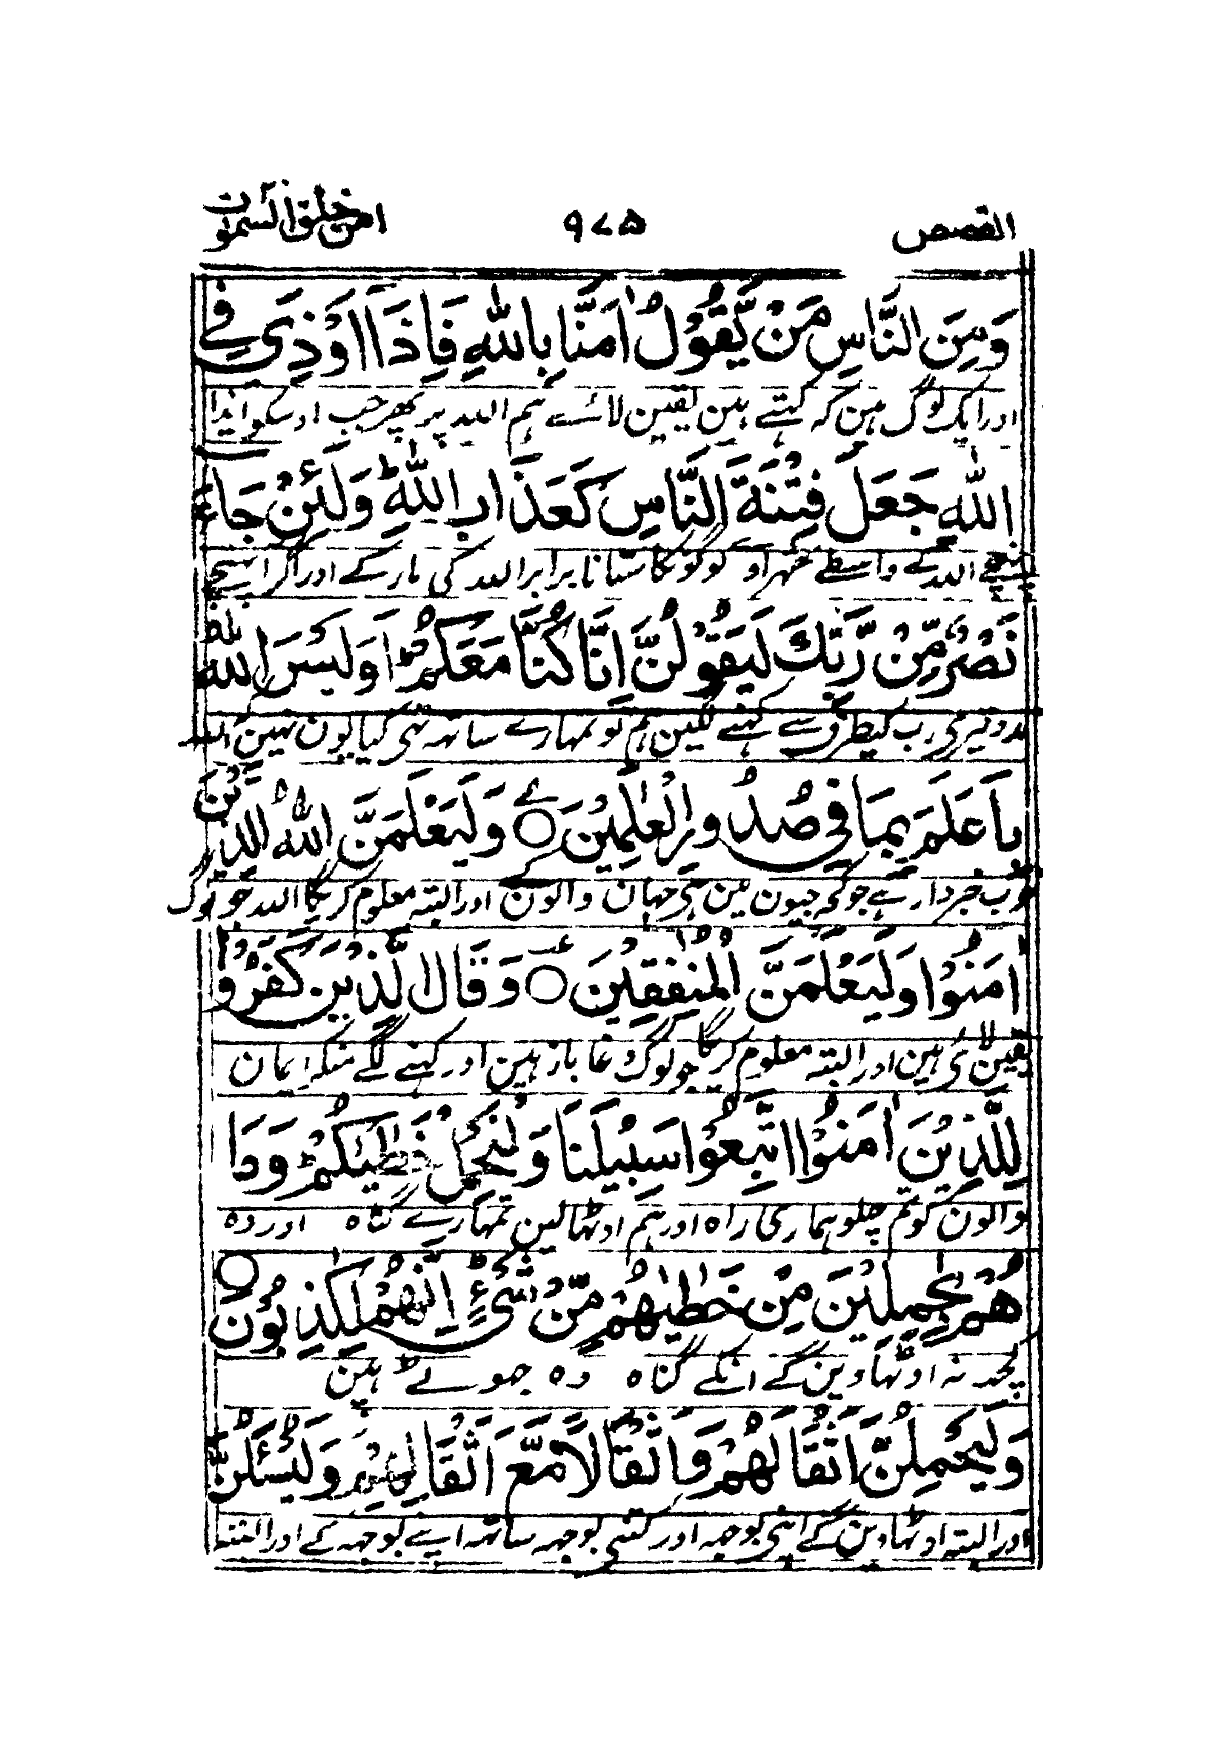 القصص ۹۷۵ امن خلق السموت
وَمِنَ النَّاسِ مَنْ يَّقُوْلُ اٰمَنَّا بِاللّٰهِ فَاِذَآ اُوْذِيَ فِي
اور ایک لوگ ہین کہ کہتے ہین یقین لائے ہم اللہ پر پھر جب اوسکو ایذا
اللّٰهِ جَعَلَ فِتْنَةَ النَّاسِ كَعَذَابِ اللّٰهِ ؕ وَلَئِنْ جَآءَ
پہنچے اللہ کے واسطے ٹھہراوے لوگونکا ستانا برابر اللہ کی مار کے اور اگر آ پہنچے
نَصْرٌ مِّنْ رَّبِّكَ لَيَقُوْلُنَّ اِنَّا كُنَّا مَعَكُمْ ؕ اَوَلَيْسَ اللّٰهُ
مدد تیری رب کیطرف سے کہنے لگین ہم تو تمہارے ساتھ تھی کیا یون نہین اللہ
بِاَعْلَمَ بِمَا فِيْ صُدُوْرِ الْعٰلَمِيْنَ ○ وَلَيَعْلَمَنَّ اللّٰهُ الَّذِيْنَ
خوب خبردار ہے جو کچھ جیون مین ہی جہان والون اور البتہ معلوم کریگا اللہ جو لوگ
اٰمَنُوْا وَلَيَعْلَمَنَّ الْمُنٰفِقِيْنَ ○ وَقَالَ الَّذِيْنَ كَفَرُوْا
یقین لائی ہین اور البتہ معلوم کریگا جو لوگ دغا باز ہین اور کہنے لگے منکر ایمان
لِلَّذِيْنَ اٰمَنُوا اتَّبِعُوْا سَبِيْلَنَا وَلْنَحْمِلْ خَطٰيٰكُمْ ؕ وَمَا
والون کو تم چلو ہماری راہ اور ہم اوٹھا لین تمہارے گناہ اور وہ
هُمْ بِحٰمِلِيْنَ مِنْ خَطٰيٰهُمْ مِّنْ شَيْءٍ ؕ اِنَّهُمْ لَكٰذِبُوْنَ ○
کچھ نہ اوٹھاوینگے انکے گناہ وہ جھوٹے ہین
وَلَيَحْمِلُنَّ اَثْقَالَهُمْ وَاَثْقَالًا مَّعَ اَثْقَالِهِمْ وَلَيُسْئَلُنَّ
اور البتہ اوٹھاوین گے اپنی بوجھ اور کتنی بوجھ ساتھ اپنے بوجھ کے اور البتہ